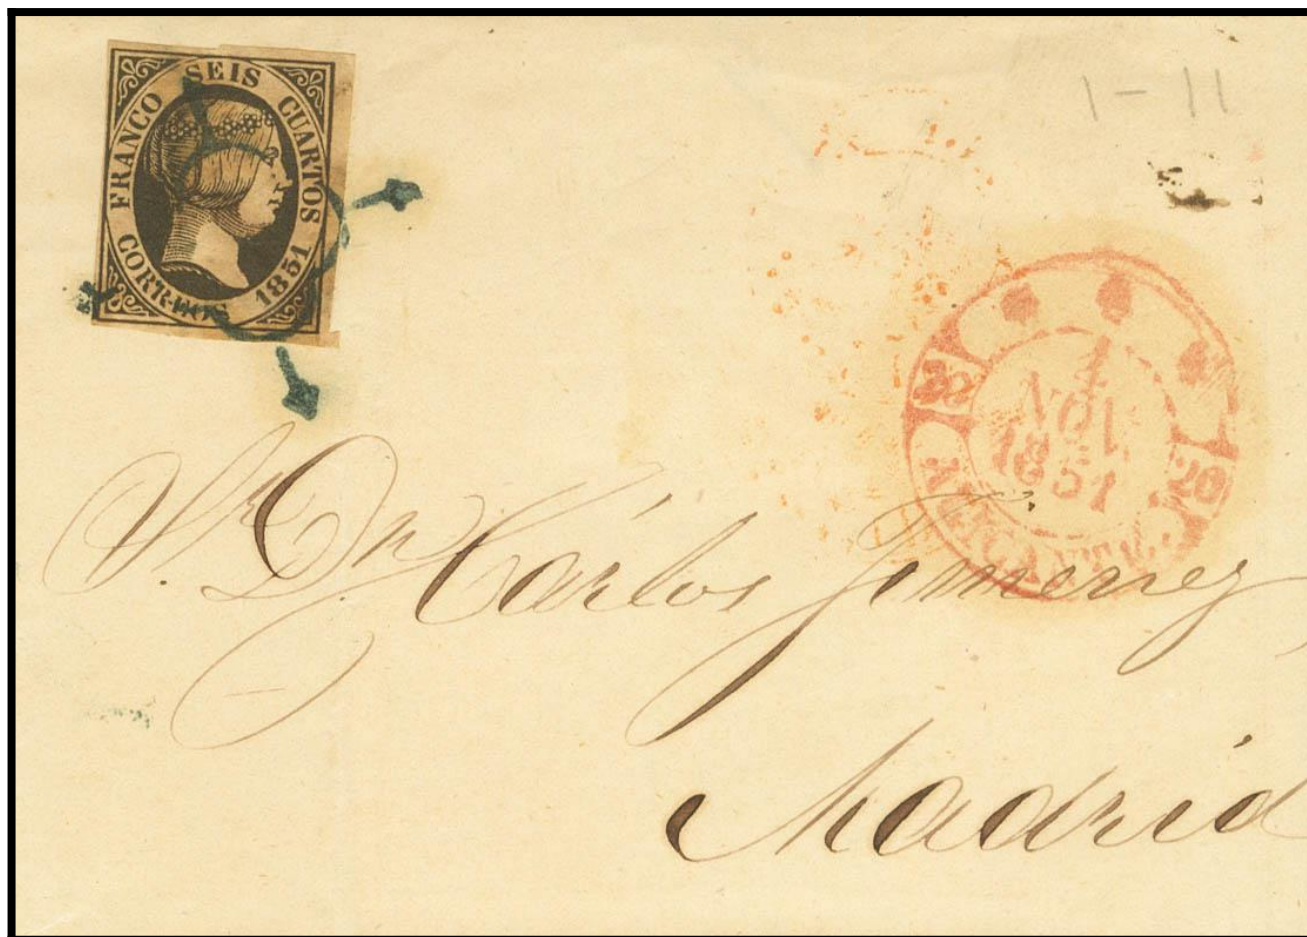 FRANCO SEIS CUARTOS
CORREOS 1851
1-11
20
1
NOV.
1851
20
ALICANTE.
Sr. Dn. Cárlos Jimenez
Madrid